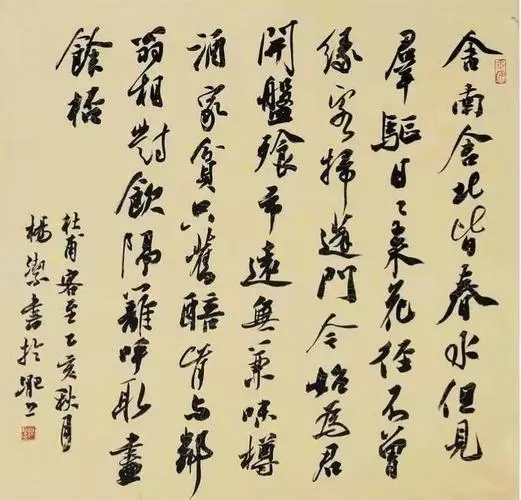 舍南舍北皆春水但見
羣驅日々来花径不曾
緣客掃蓬門今始為君
開盤飧市遠無兼味樽
酒家貧只舊醅肯與鄰
翁相對飲隔籬呼取盡
餘杯
杜甫客至乙亥秋月
楊潔書於肥上